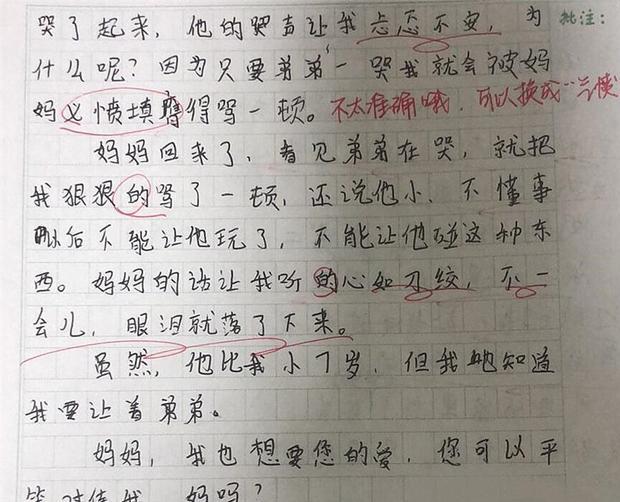 哭了起来，他的哭声让我忐忑不安，为 批注：
什么呢？因为只要弟弟一哭我就会被妈
妈义愤填膺得骂一顿。不太准确哦，可以换成"
妈妈回来了，看见弟弟在哭，就把
我狠狠的骂了一顿，还说他小，不懂事
以后不能让他玩了，不能让他碰这种东
西。妈妈的话让我听的心如刀绞，不一
会儿，眼泪就落了下来。
虽然，他比我小7岁，但我地知道
我要让着弟弟。
妈妈，我也想要您的爱，您可以平
等对待我 妈吗？